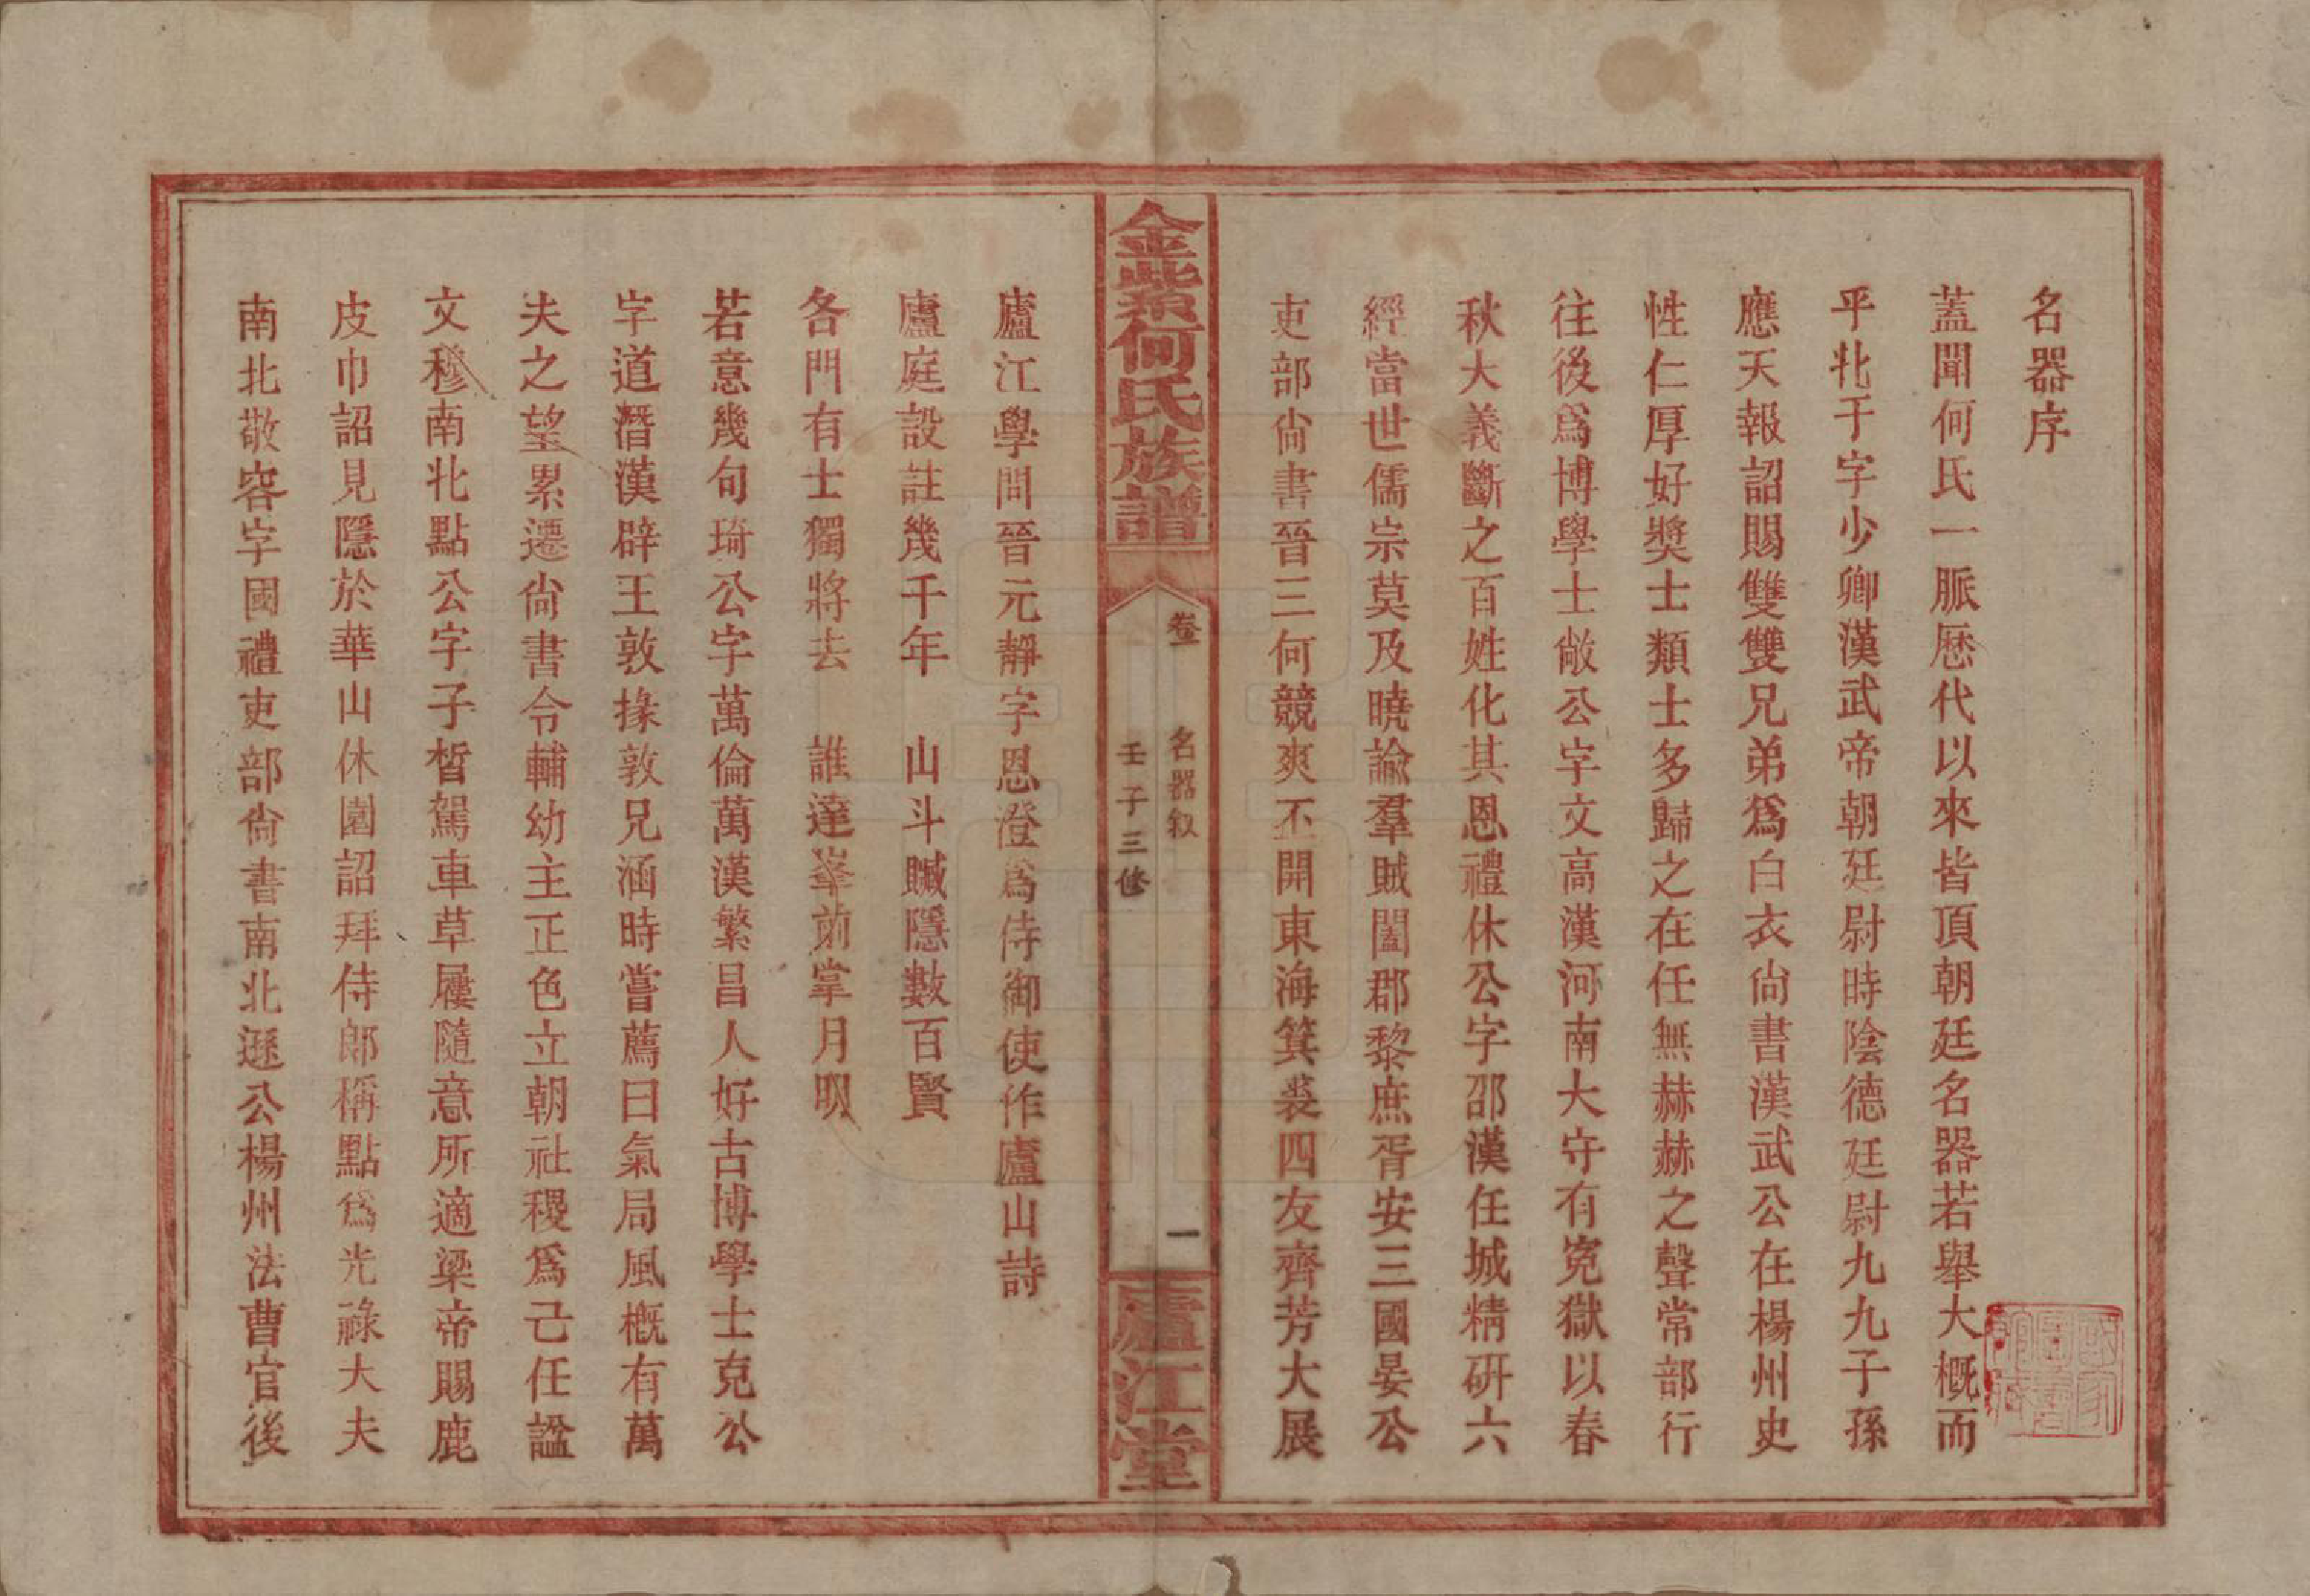 名器序
蓋聞何氏一脈歷代以來皆頂朝廷名器若舉大槪而
平北于字少卿漢武帝朝廷尉時陰德廷尉九九子孫
應天報詔賜雙雙兄弟爲白衣尙書漢武公在楊州史
性仁厚好獎士類士多歸之在任無赫赫之聲常部行
往後爲博學士敞公字文高漢河南大守有寃獄以春
秋大義斷之百姓化其恩禮休公字邵漢任城精硏六
經當世儒宗莫及曉諭羣賊闔郡黎庶胥安三國晏公
吏部尙書晉三何競爽丕開東海箕裘四友齊芳大展
金紫何氏族譜
卷 名器叙 一
壬子三修
廬江堂
廬江學問晉元靜字恩澄爲侍御使作廬山詩
廬庭設註幾千年 山斗贓隱數百賢
各門有士獨將去 誰達峯前掌月明
若意幾句琦公字萬倫萬漢繁昌人好古博學士克公
字道潛漢辟王敦掾敦兄涵時嘗薦曰氣局風槪有萬
夫之望累遷尙書令輔幼主正色立朝社稷爲己任謚
文穆南北點公字子晳駕車草屨隨意所適梁帝賜鹿
皮巾詔見隱於華山休園詔拜侍郎稱點爲光祿大夫
南北敬容字國禮吏部尙書南北遜公楊州法曹官後